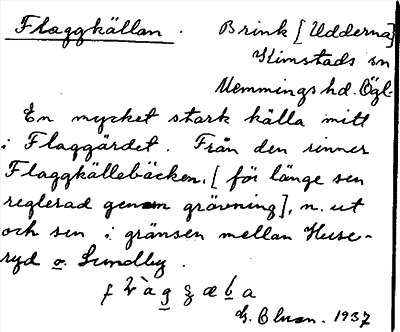 Flaggkällan. Brink [Udderna]
Kimstads sn
Memmings hd. Ögl.
En mycket stark källa mitt
i Flaggärdet. Från den rinner
Flaggkällebäcken, [för länge sen
reglerad genom grävning], n. ut
och sen i gränsen mellan Huse-
ryd o. Lundby.
1937